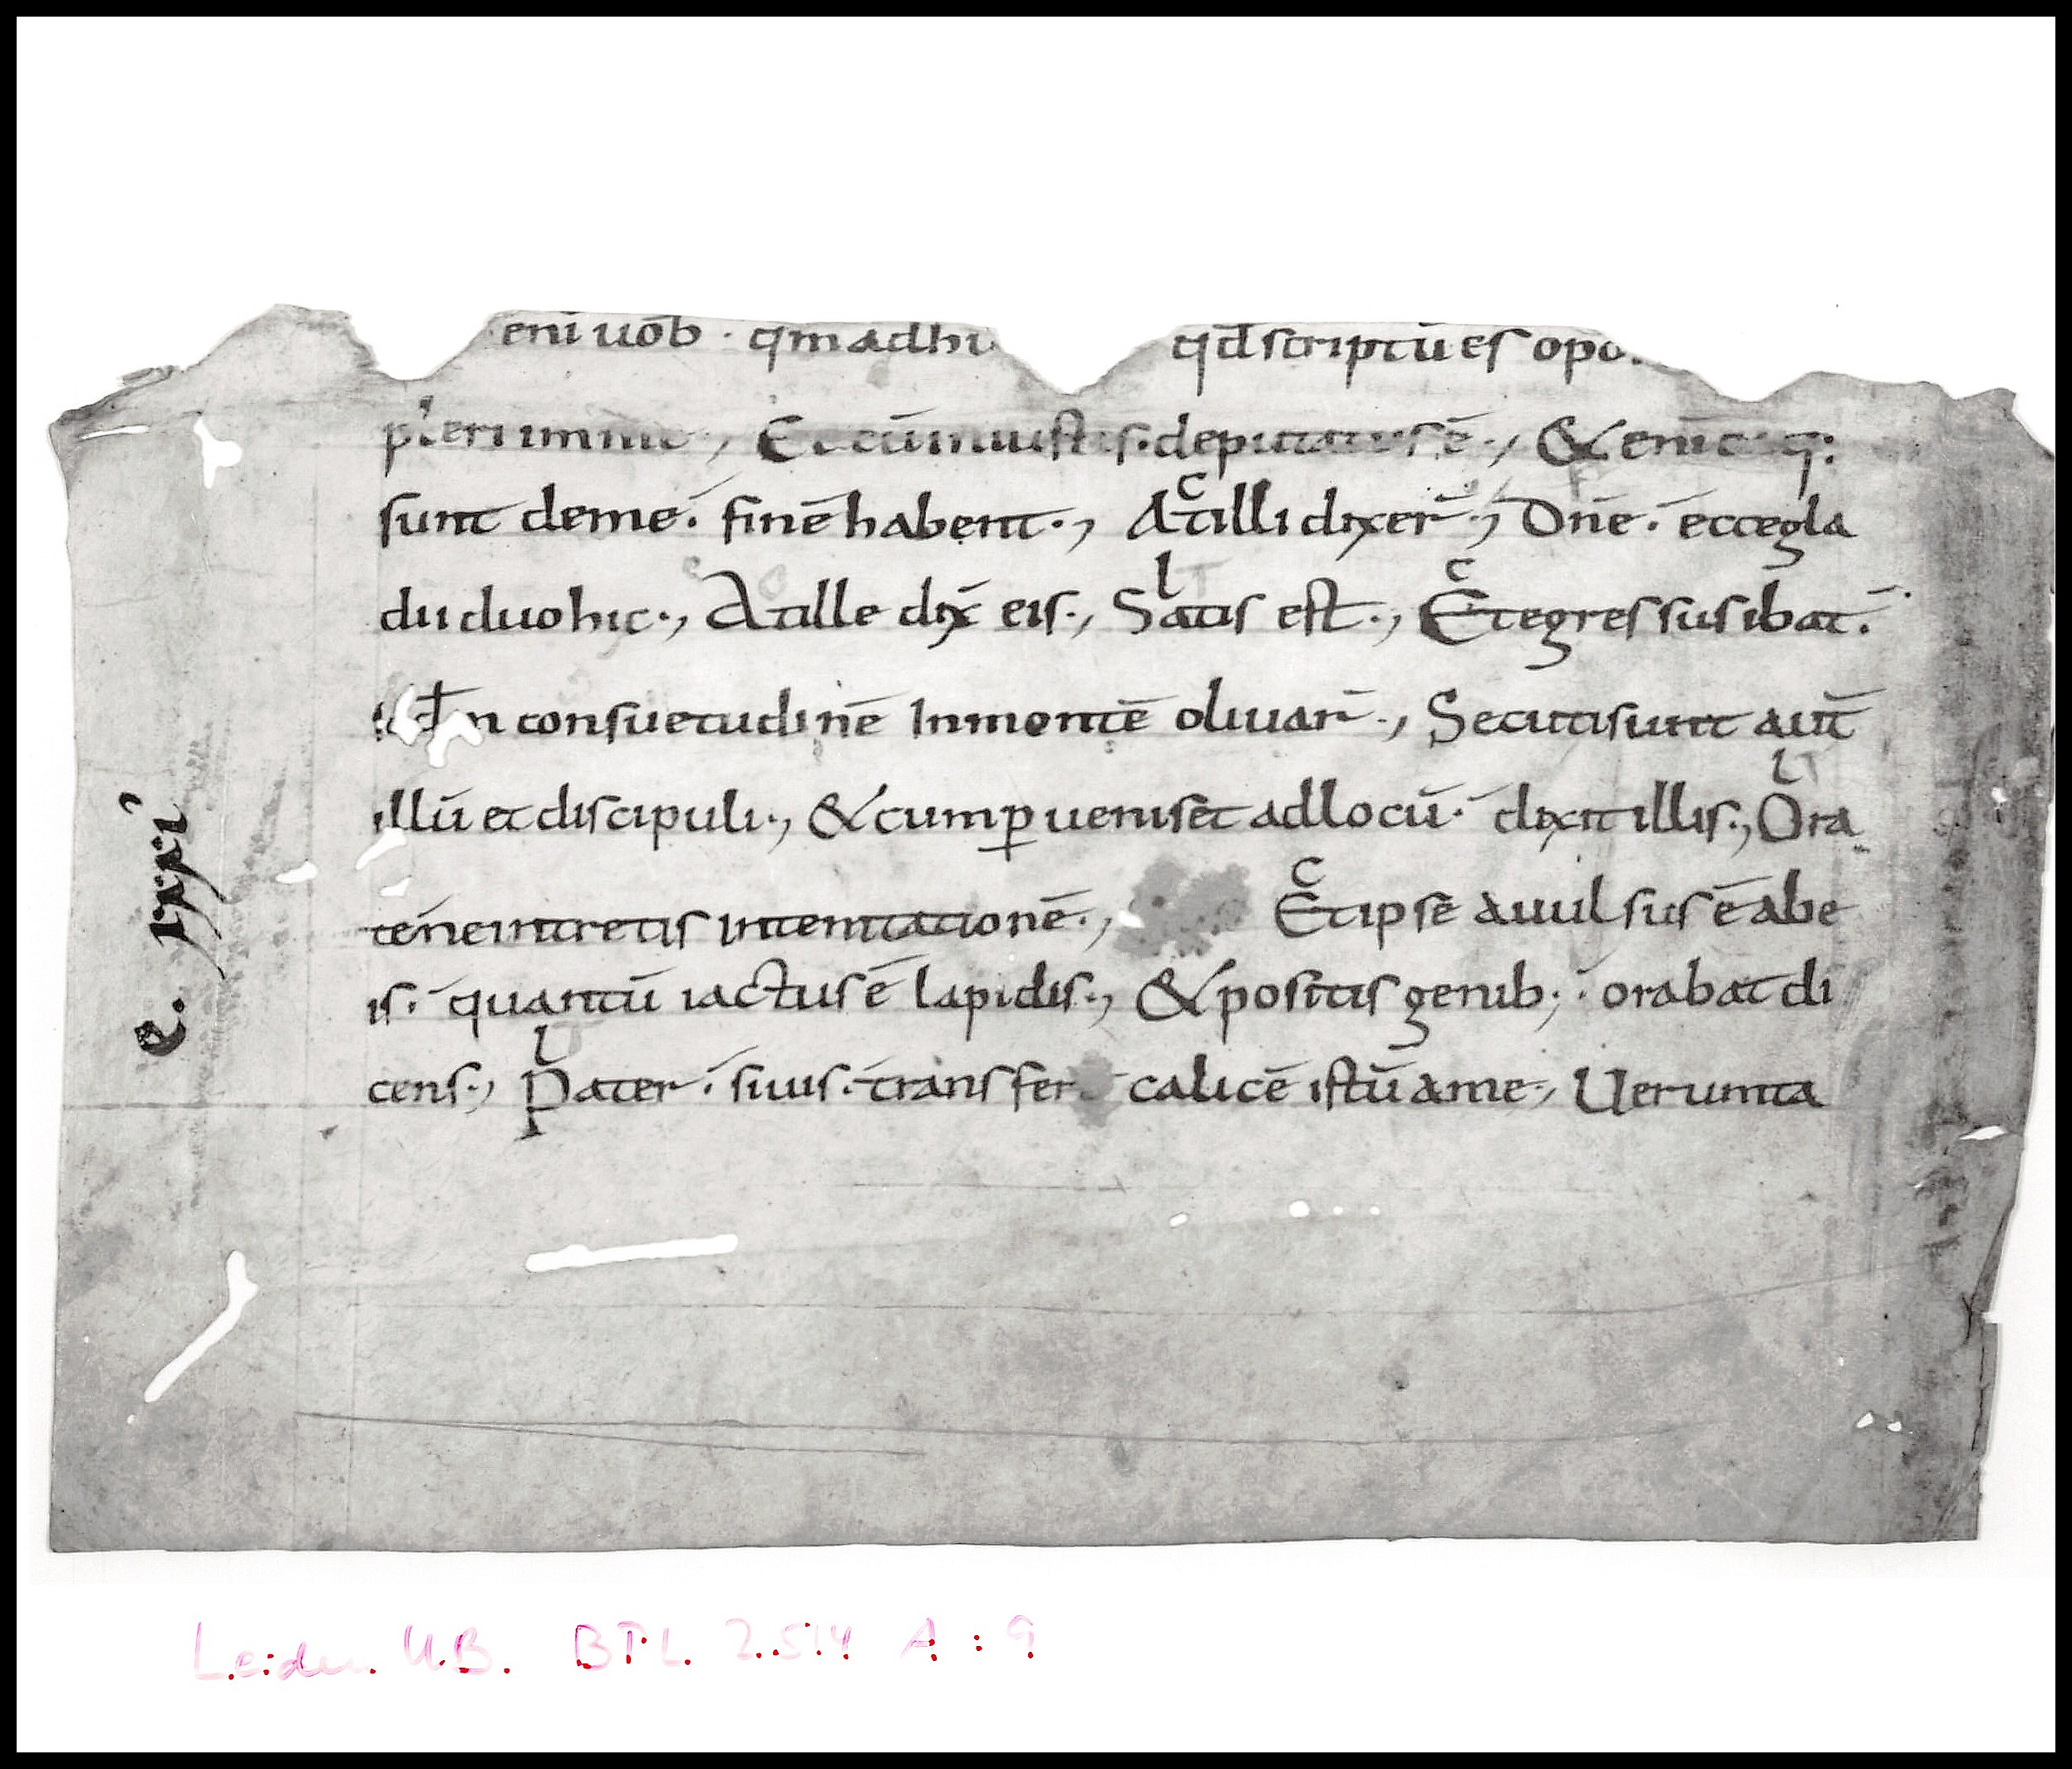 enī uob · qm adhu qđ scriptū es opo
impleri in me ·, Et cū iniustis · deputatus ē ·, & eni ea q:
sunt deme · finē habent ·, At illi dixer̄ ·, Dn̄e · ecce gla
dii duo hic ·, At ille dix̄ eis ·, Satis est ·, Et egressus ibat ·
scđm consuetudinē In montē oliuar̄ ·, Secuti sunt aut̄
illū et discipuli ·, & cum p̱uenisēt ad locū · dixit illis ·, Ora
te ne intretis in temtationē ·, Et ipse auulsus ē ab e
is · quantū iactus ē lapidis ·, & positis genib; · orabat di
cens ·, Pater · si uis · transfer calicē istū a me ·, Uerumta
e. xxi
Leiden U.B. BPL 2514 A : 9